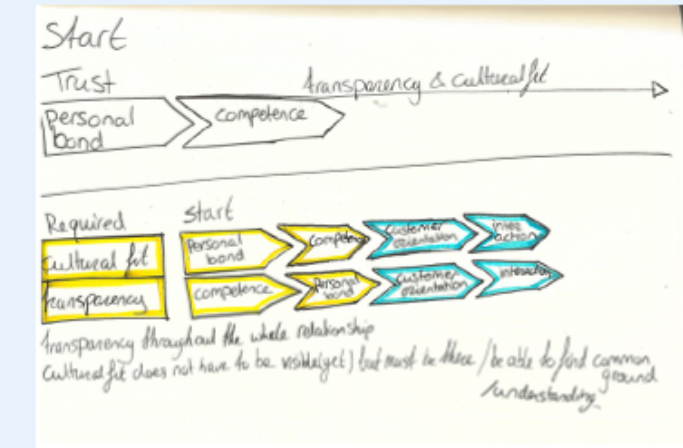 Start
Trust
transparency & cultural fit
personal bond
competence
Required
start
Cultural fit
Personal bond
Competence
Customer orientation
inter action
transparency
competence
Personal bond
Customer orientation
interaction
transparency throughout the whole relationship
Cultural fit does not have to be visible(yet) but must be there / be able to find common ground
/understanding.